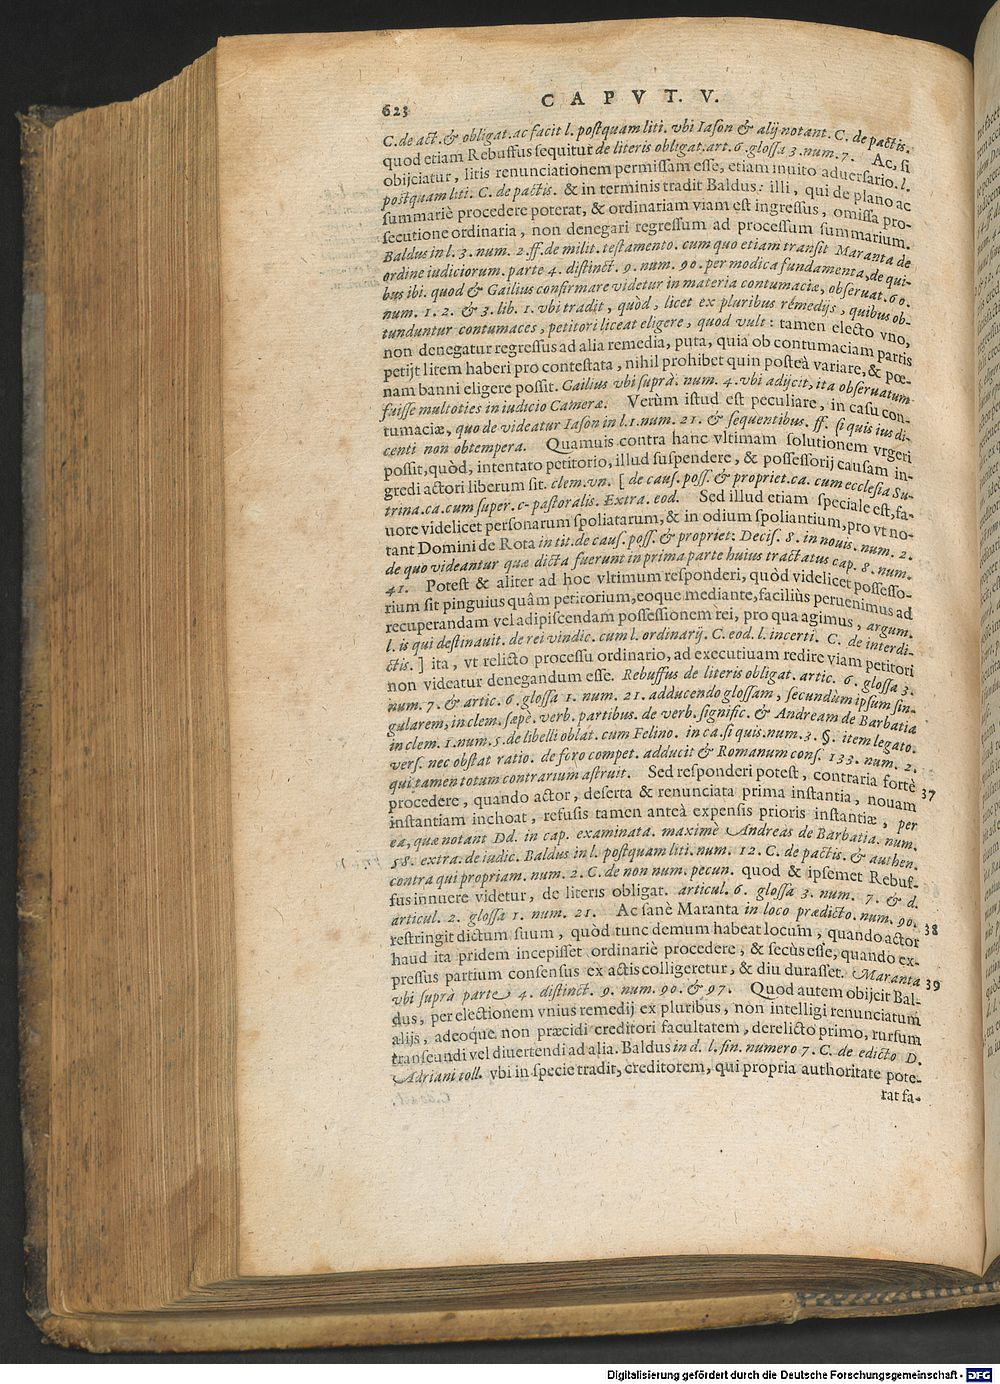 623 CAPVT. V.
C. de act. & obligat. ac facit l. postquam liti. vbi Iason & alij notant. C. de pactis.
quod etiam Rebuffus sequitur de literis obligat. art. 6. glossa 3. num. 7. Ac, si
obijciatur, litis renunciationem permissam esse, etiam inuito aduersario. l.
postquam liti. C. de pactis. & in terminis tradit Baldus: illi, qui de plano ac
summariè procedere poterat, & ordinariam viam est ingressus, omissa pro-
secutione ordinaria, non denegari regressum ad processum summarium.
Baldus in l. 3. num. 2. ff. de milit. testamento. cum quo etiam transit Maranta de
ordine iudiciorum. parte 4. distinct. 9. num. 90. per modica fundamenta, de qui-
bus ibi. quod & Gailius confirmare videtur in materia contumaciæ, obseruat. 60.
num. 1. 2. & 3. lib. 1. vbi tradit, quòd, licet ex pluribus remedijs, quibus ob-
tunduntur contumaces, petitori liceat eligere, quod vult: tamen electo vno,
non denegatur regressus ad alia remedia, puta, quia ob contumaciam partis
petijt litem haberi pro contestata, nihil prohibet quin posteà variare, & pœ-
nam banni eligere possit. Gailius vbi suprà. num. 4. vbi adijcit, ita obseruatum
fuisse multoties in iudicio Cameræ. Verùm istud est peculiare, in casu con-
tumaciæ, quo de videatur Iason in l. 1. num. 21. & sequentibus. ff. si quis ius di-
centi non obtempera. Quamuis contra hanc vltimam solutionem vrgeri
possit, quòd, intentato petitorio, illud suspendere, & possessorij causam in-
gredi actori liberum sit. clem. vn. [ de caus. poss. & propriet. ca. cum ecclesia Su-
trina. ca. cum super. c- pastoralis. Extra. eod. Sed illud etiam speciale est, fa-
uore videlicet personarum spoliatarum, & in odium spoliantium, pro vt no-
tant Domini de Rota in tit. de caus. poss. & propriet: Decis. 8. in nouis. num. 2.
de quo videantur quæ dicta fuerunt in prima parte huius tractatus cap. 8. num.
41. Potest & aliter ad hoc vltimum responderi, quòd videlicet possesso-
rium sit pinguius quâm petitorium, eoque mediante, faciliùs peruenimus ad
recuperandam vel adipiscendam possessionem rei, pro qua agimus, argum.
l. is qui destinauit. de rei vindic. cum l. ordinarij. C. eod. l. incerti. C. de interdi-
ctis. ] ita, vt relicto processu ordinario, ad executiuam redire viam petitori
non videatur denegandum esse. Rebuffus de literis obligat. artic. 6. glossa 3.
num. 7. & artic. 6. glossa 1. num. 21. adducendo glossam, secundùm ipsum sin-
gularem, in clem. sæpè. verb. partibus. de verb. signific. & Andream de Barbatia
in clem. 1. num. 5. de libelli oblat. cum Felino. in ca. si quis. num. 3. §. item legato.
vers. nec obstat ratio. de foro compet. adducit & Romanum cons. 133. num. 2.
qui tamen totum contrarium astruit. Sed responderi potest, contraria fortè 37
procedere, quando actor, deserta & renunciata prima instantia, nouam
instantiam inchoat, refusis tamen anteà expensis prioris instantiæ, per
ea, quæ notant Dd. in cap. examinata. maximè Andreas de Barbatia. num.
58. extra. de iudic. Baldus in l. postquam liti. num. 12. C. de pactis. & authen.
contra qui propriam. num. 2. C. de non num. pecun. quod & ipsemet Rebuf-
fus innuere videtur, de literis obligat. articul. 6. glossa 3. num. 7. & d.
articul. 2. glossa 1. num. 21. Ac sanè Maranta in loco prædicto. num. 90. 38
restringit dictum suum, quòd tunc demum habeat locum, quando actor
haud ita pridem incepisset ordinariè procedere, & secùs esse, quando ex-
pressus partium consensus ex actis colligeretur, & diu durasset. Maranta 39
vbi suprà parte 4. distinct. 9. num. 90. & 97. Quod autem obijcit Bal-
dus, per electionem vnius remedij ex pluribus, non intelligi renunciatum
alijs, adeoque non præcidi creditori facultatem, derelicto primo, rursum
transeundi vel diuertendi ad alia. Baldus in d. l. fin. numero 7. C. de edicto D.
Adriani toll. vbi in specie tradit, creditorem, qui propria authoritate pote-
rat fa-
Digitalisierung gefördert durch die Deutsche Forschungsgemeinschaft - DFG